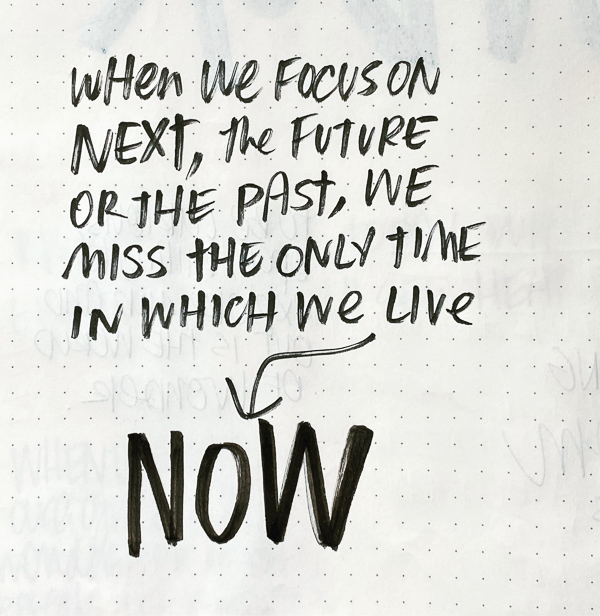 WHen We FOCUS ON
NEXT, the FUTURE
OR THE PAST, WE
MISS THE ONLY TIME
IN WHICH We LIVe
NOW